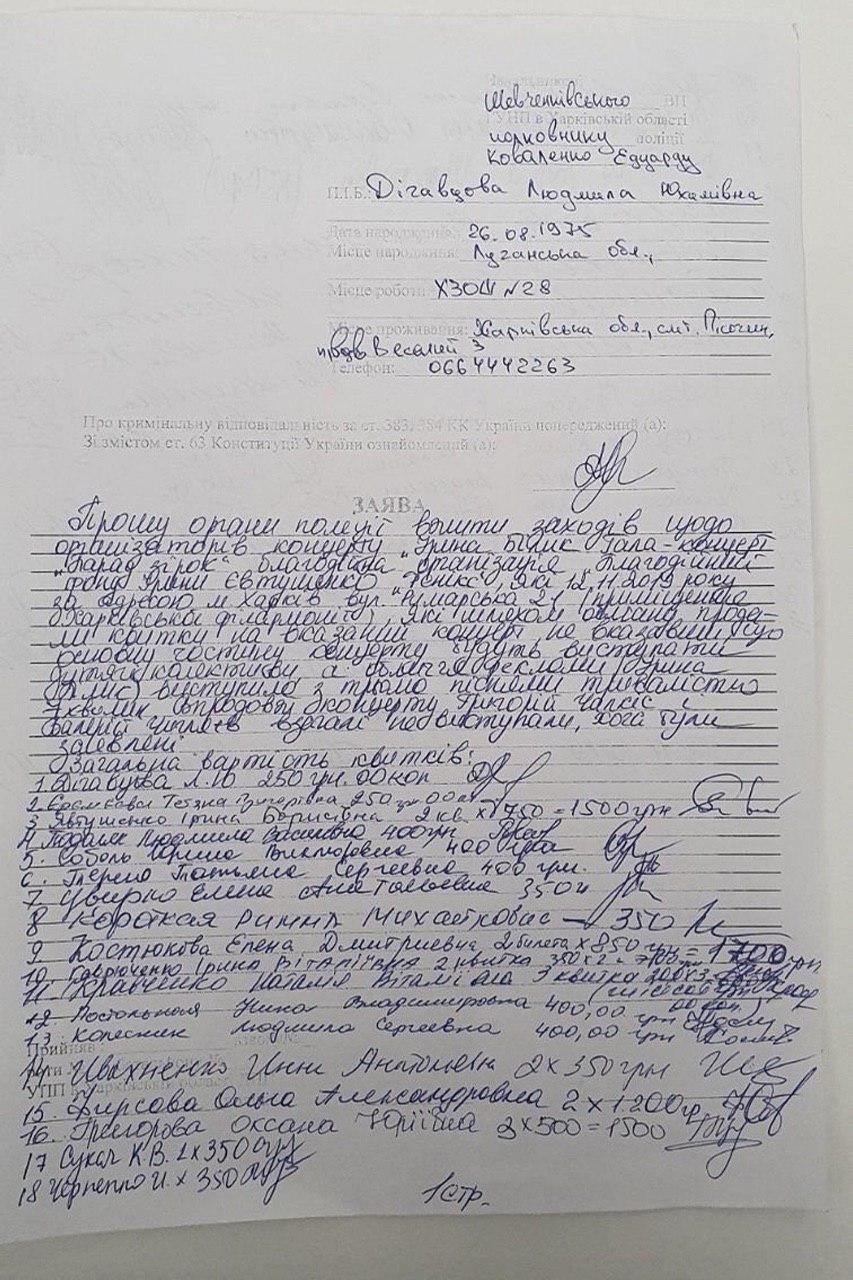 Шевченківського ВП
ГУНП в Харківській області
полковнику поліції
Коваленко Едуарду
П.І.Б.: Дігавцова Людмила Юхимівна
Дата народження: 26.08.1975
Місце народження: Луганська обл.,
Місце роботи: ХЗОШ №28
Місце проживання: Харківська обл., смт. Пісочин,
Веселий 3
Телефон: 0664442263
Про кримінальну відповідальність за ст. 383, 384 КК України попереджений (а):
Зі змістом ст. 63 Конституції України ознайомлений (а):
ЗАЯВА
Прошу органи поліції вжити заходів щодо
організаторів концерту „Ірина Білик Гала-концерт
„Парад зірок" благодійна організація „Благодійний
фонд Ірини Євтушенко „Фенікс", які 12.11.2019 року
за адресою м. Харків вул. Римарська 21 (приміщення
Харківської філармонії), які шляхом обману прода-
ли квитки на вказаний концерт не вказавши що
основну частину концерту будуть виступати
дитячі колективи а обличчя реклами (Ірина
Білик) виступила з трьома піснями тривалістю
хвилин впродовж концерту, Григорій Чапкіс і
Валерій взагалі не виступали, хоча були
заявлені.
Загальна вартість квитків:
1. Л.Ю 250 грн. 00 коп
2. Тетяна Григорівна 250 грн 00
3. Євтушенко Ірина Борисівна 2 кв. х 750 = 1500 грн
4. Людмила Василівна 400 грн
5. Соболь Ирина Викторовна 400
6. Татьяна Сергеевна 400 грн.
7 Елена Анатольевна 350
8 Короткая Римма Михайловна – 350
9 Костюкова Елена Дмитриевна 2 билета х 850 грн = 1700 грн
10 Ірина Віталіївна 2 квитка 350 х 2 = 700
11 Кравченко Наталія Віталіївна 3 квитка 200х3
12. Нина Владимировна 400,00 грн
13. Колесник Людмила Сергеевна 400,00 грн
Прийняв
14 Ивахненко Инна Анатольевна 2 х 350 грн
15. Фирсова Ольга Александровна 2 х 1200 гр
16. Григорова Оксана Юріївна 3 х 500 = 1500
17 К.В. 2 х 350
18 И. х 350
1 стр.